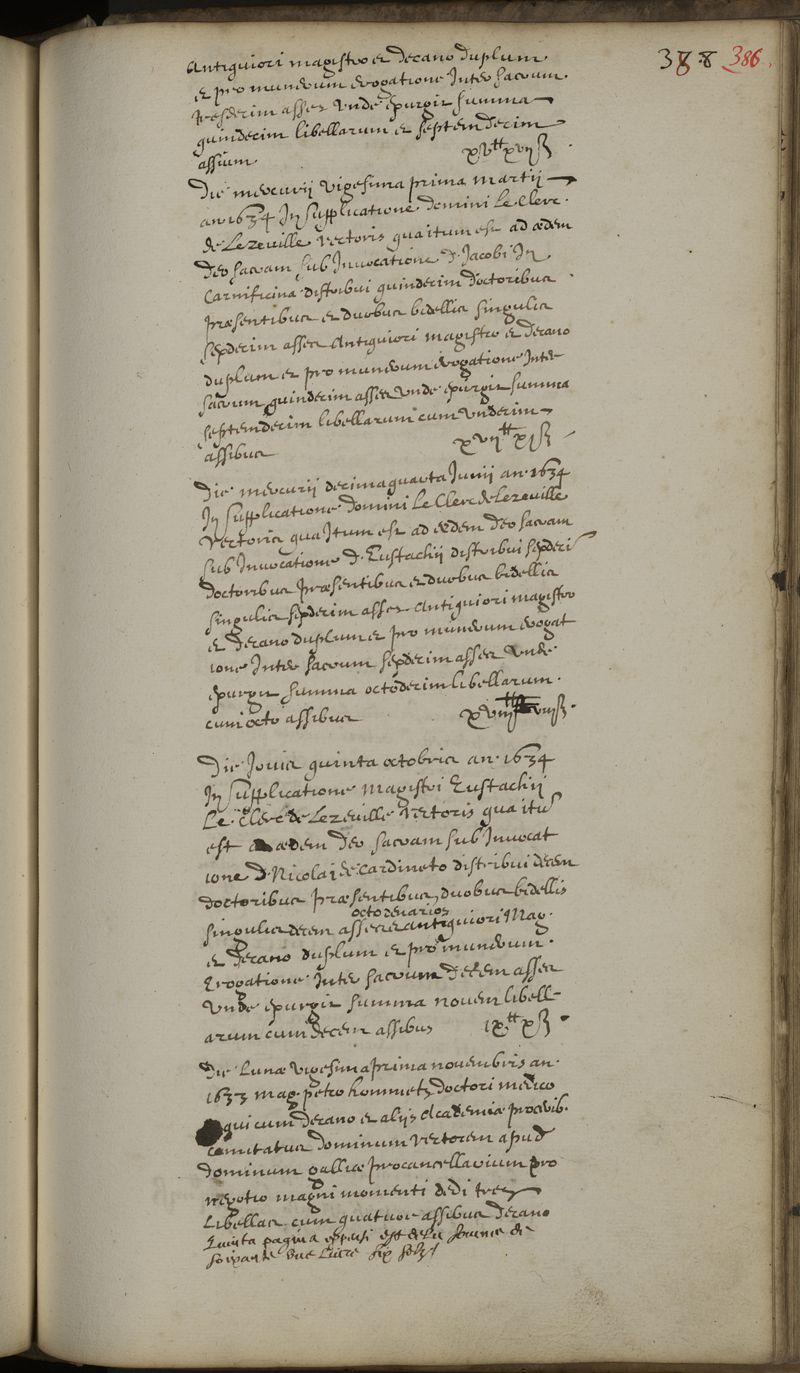 388 386
Antiquiori magistro et Decano duplum
et pro munerum erogatione Inter sacrum
sexdecim asses Unde epurgit summa
quindecim libellarum et septemdecim
assium. xv<sup>tt</sup> xvij ß
Die mercurij vigesima prima martij
an 1634 In supplicatione domini Le Clerc
de Lezeuille rectoris qua itum est ad ædem
Deo sacram sub Inuocatione D. Jacobi In
Carnificina distribui quindecim doctoribus
præsentibus et duobus bidellis singulis
sexdecim asses Antiquiori magistro et Decano
duplum et pro munerum erogatione Inter
sacrum quindecim asses Unde epurgit summa
septemdecim libellarum cum Undecim
assibus xvij<sup>tt</sup> xj ß
Die mercurij decimaquarta Junij an. 1634
In supplicatione domini Le Clerc de Lezeuille
rectoris qua Itum est ad ædem Deo sacram
sub Inuocatione D. Eustachij distribui sexdeci
doctoribus præsentibus et duobus bidellis
singulis sexdecim asses Antiquiori magistro
et Decano duplum et pro munerum erogat
ione Inter sacrum sexdecim asses Unde
epurgit summa octodecim libellarum
cum octo assibus xviij<sup>tt</sup> viij ß
Die Jouis quinta octobris an. 1634
In supplicatione magistri Eustachij
Le Clerc de Lezeuille rectoris qua itu
est ædem Deo sacram sub Inuocat
ione D. Nicolai de Cardineto distribui decem
doctoribus præsentibus, duobus bidellis
octo denarios
singulis decem asses et antiquiori Mag.
et Decano duplum et pro munerum
Erogatione Inter sacrum decem asses
Unde epurgit summa nouem libell-
arum cum decem assibus ix<sup>tt</sup> x ß
Die Lunæ vigesima prima nouembris an.
1633 mag. petro hommetz doctori medico
qui cum Decano et alijs Academiæ procerib.
comitatus dominum rectorem apud
dominum galliæ procancellarium pro
negotio magni momenti dedi tres
Libellas cum quatuor assibus Decano
pagina est de la somme de
soixante Livre six solz